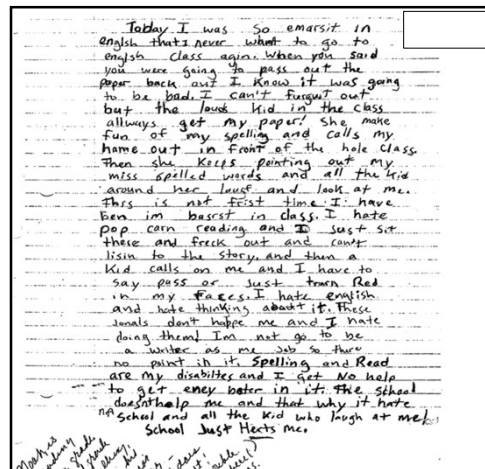 Today I was so emarsit in
english that I never want to go to
englsh class agin. When you said
you were going to pass out the
paper back out I know it was going
to be bad. I can't furguit out
but the loud kid in the class
allways get my paper! She make
fun of my spelling and calls my
name out in front of the hole class.
Then she keeps pointing out my
miss spelled words and all the kid
around her laugf and look at me.
This is not frist time I have
ben im basrst in class. I hate
pop carn reading and I Just sit
these and freck out and can't
lisin to the story. and then a
kid calls on me and I have to
say pass or Just trarn Red
in my faces. I hate english
and hate thinking about it. These
jonals don't happe me and I hate
doing them! Im not go to be
a writer as me Job so there
no point in it. Spelling and Read
are my disabiltes and I get No help
to get eney beter in it. The School
doesnt help me and that why it hate
School and all the kid who laugh at me!
School Just Herts me.
Noah is
grade
grade